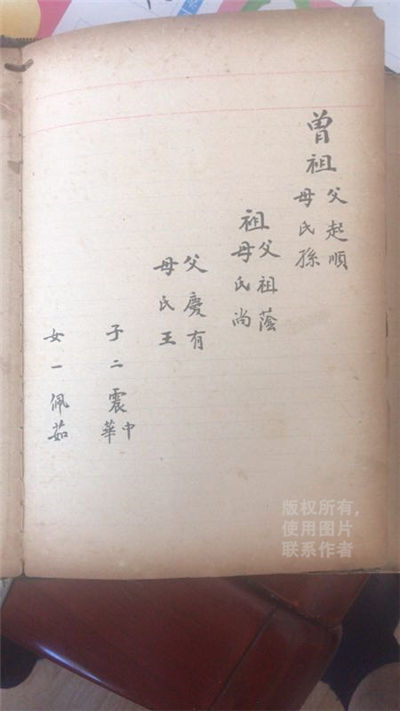 曾祖父起順
母氏孫
祖父祖蔭
母氏尚
父慶有
母氏王
子二震中
華
女一佩茹
版权所有，
使用图片
联系作者